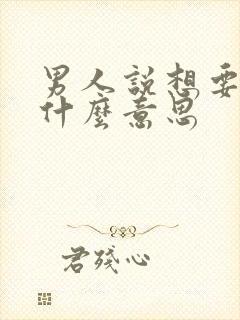 男人說想要
什麼意思
君殘心